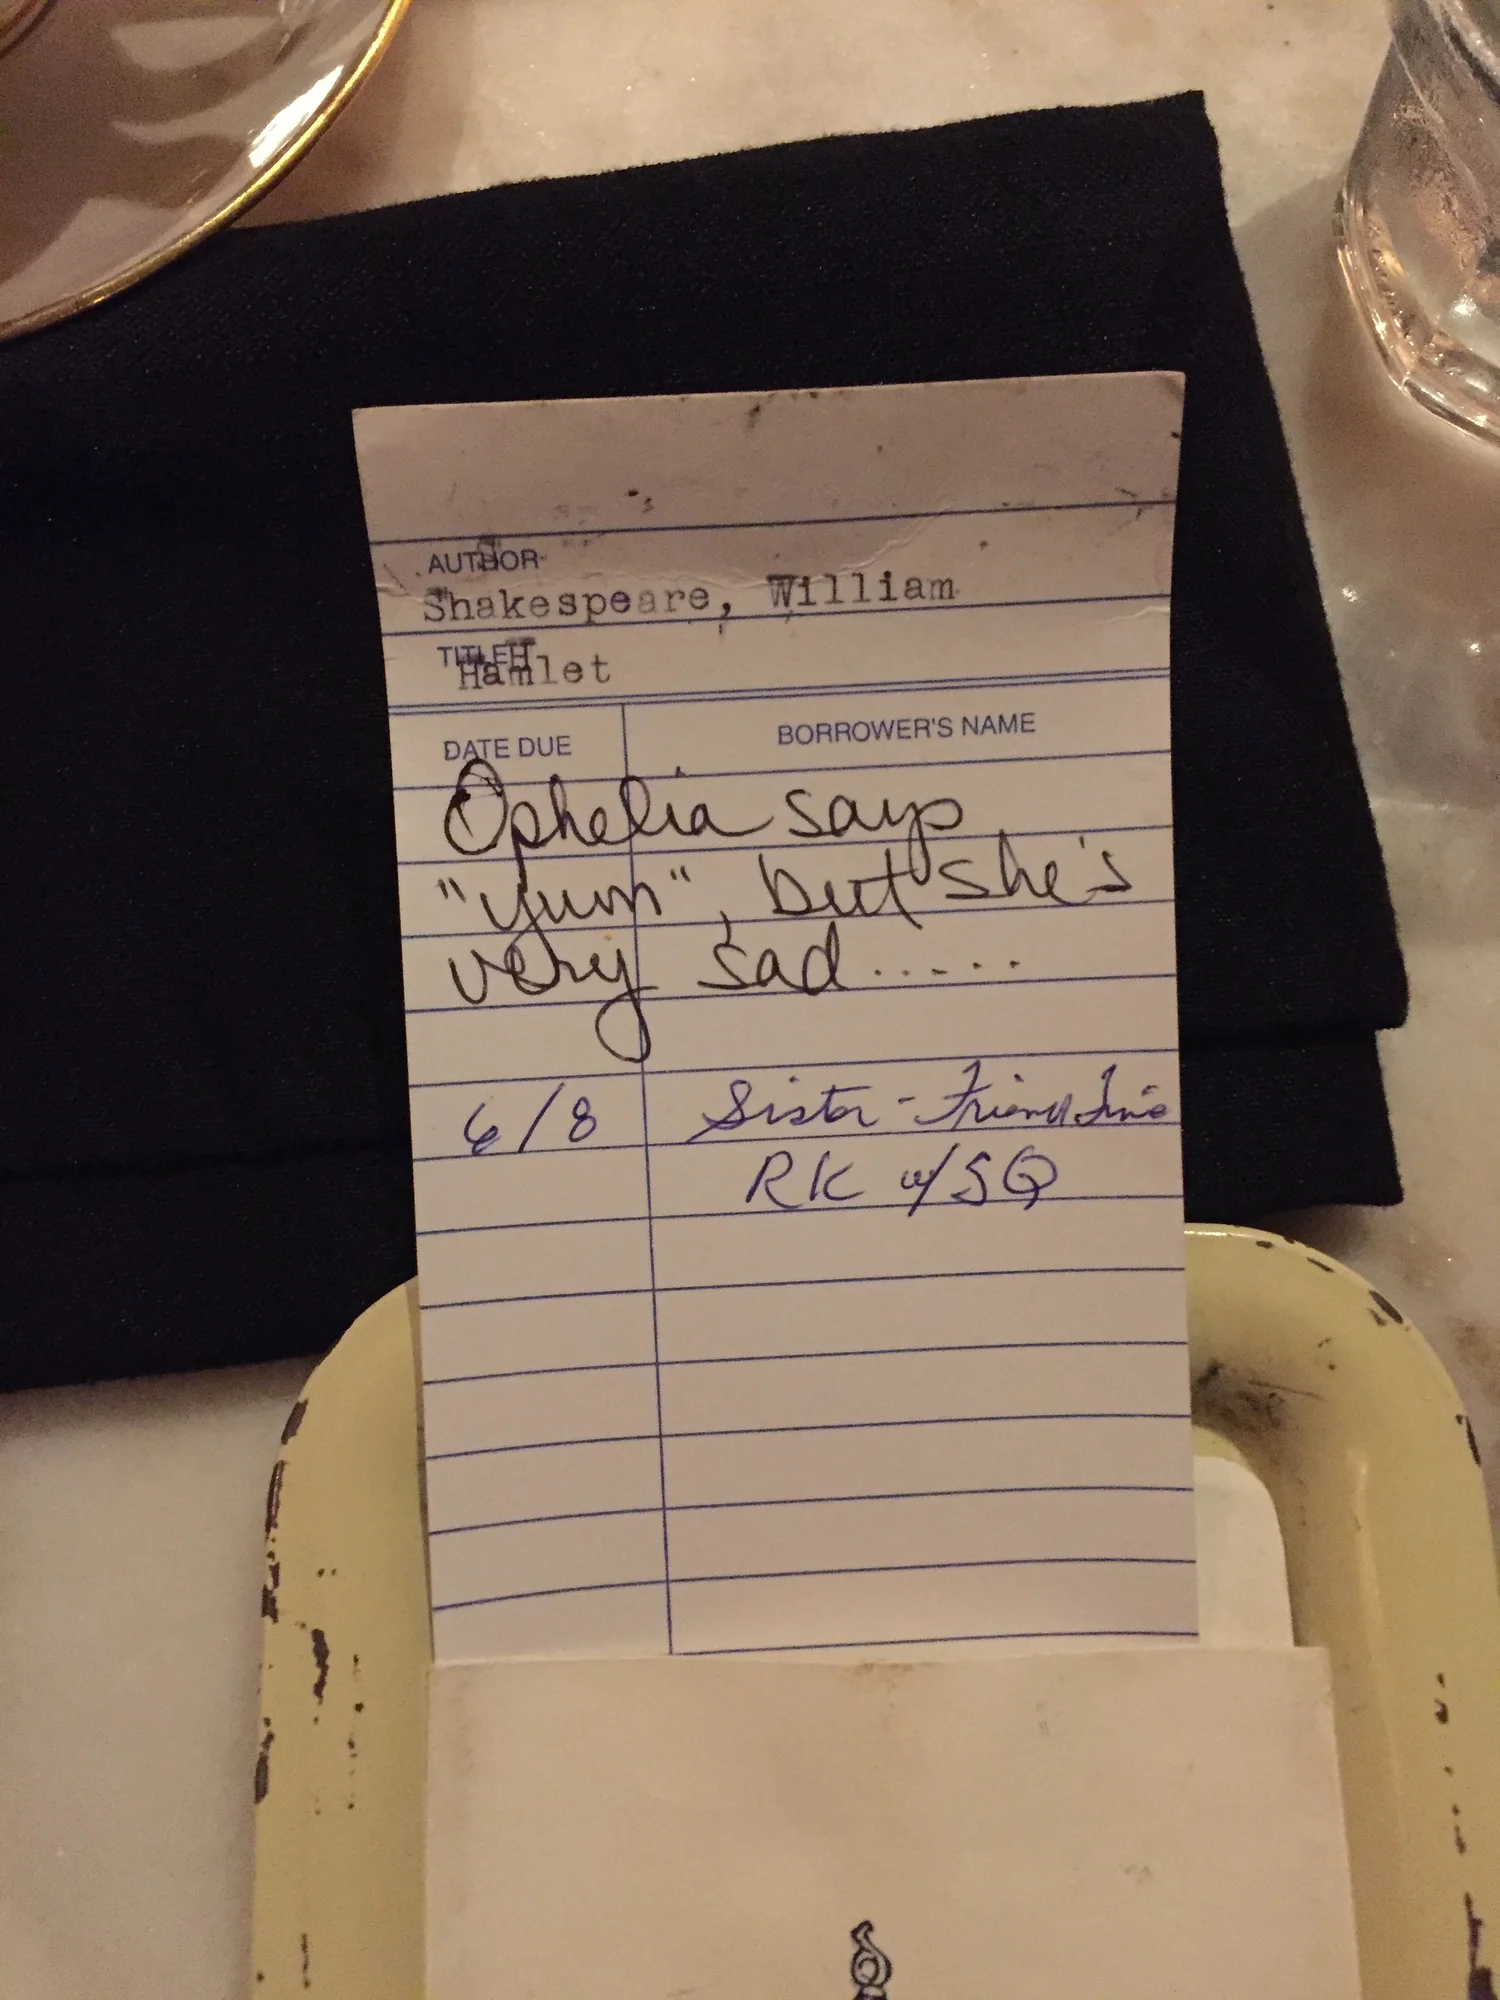 AUTHOR
Shakespeare, William
TITLE
Hamlet
DATE DUE BORROWER'S NAME
Ophelia says
"yum", but she's
very sad.....
6/8 Sister-Friend
RK w/SQ